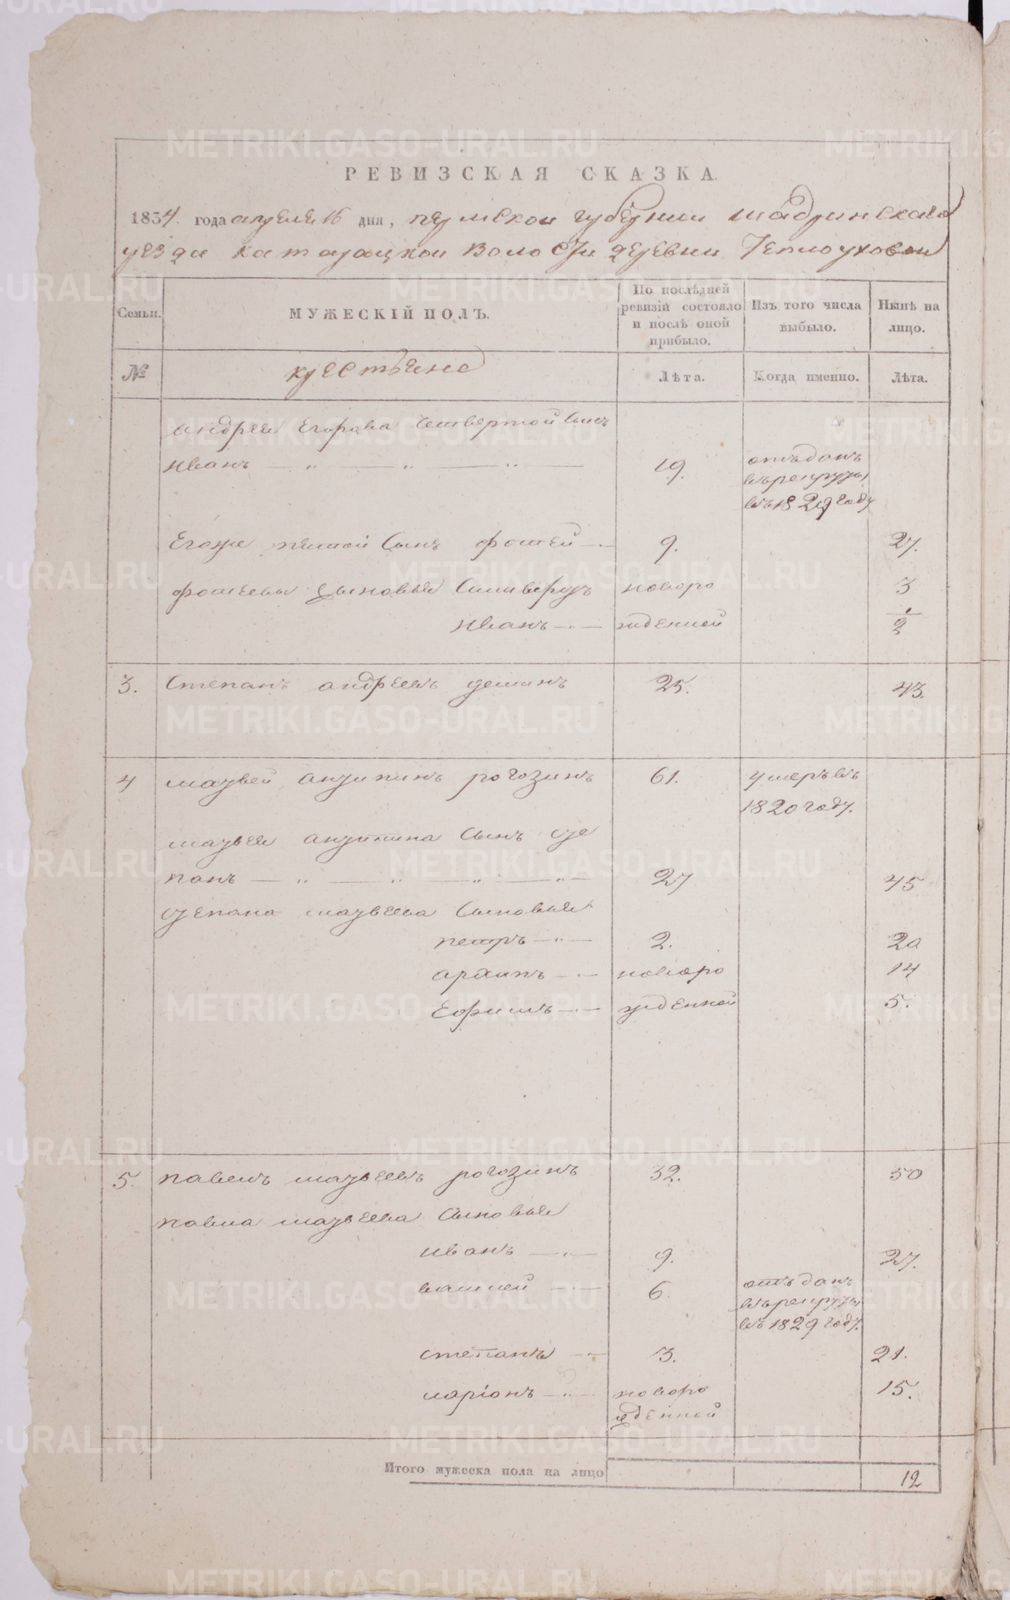 РЕВИЗСКАЯ СКАЗКА.
1834. года апреля 16 дня, пермской губернии шадринского
уезда катайской волости деревни Теплоуховой
Семьи.
МУЖЕСКІЙ ПОЛЪ.
По послѣдней ревизіи состояло и послѣ оной прибыло.
Изъ того числа выбыло.
Нынѣ на лицо.
№
крестьяне
Лѣта.
Когда именно.
Лѣта.
андрея Егорова Четвертой Сынъ
Иванъ 19. отъданъ въ рекруты въ 1829 году
Егоже пятой Сынъ фотей 9. 27.
фотеевы Сыновья Сильверстъ новоро 3
Иванъ жденной 1/2
3. Степанъ андреевъ деминъ 25. 43
4 матвей антипинъ рогозинъ 61. умеръ въ 1820 году.
матвея антипина Сынъ Сте
панъ 27 45
Степана матвеева Сыновья
петръ 2. 20
архипъ новоро 14
Ефимъ жденной 5.
5. павелъ матвеевъ рогозинъ 32. 50
павла матвеева Сыновья
иванъ 9. 27.
6. отъданъ въ рекруты въ 1829 году.
степанъ 3. 21.
ларіонъ новоро жденной 15.
Итого мужеска пола на лицо 12
METRIKI.GASO-URAL.RU